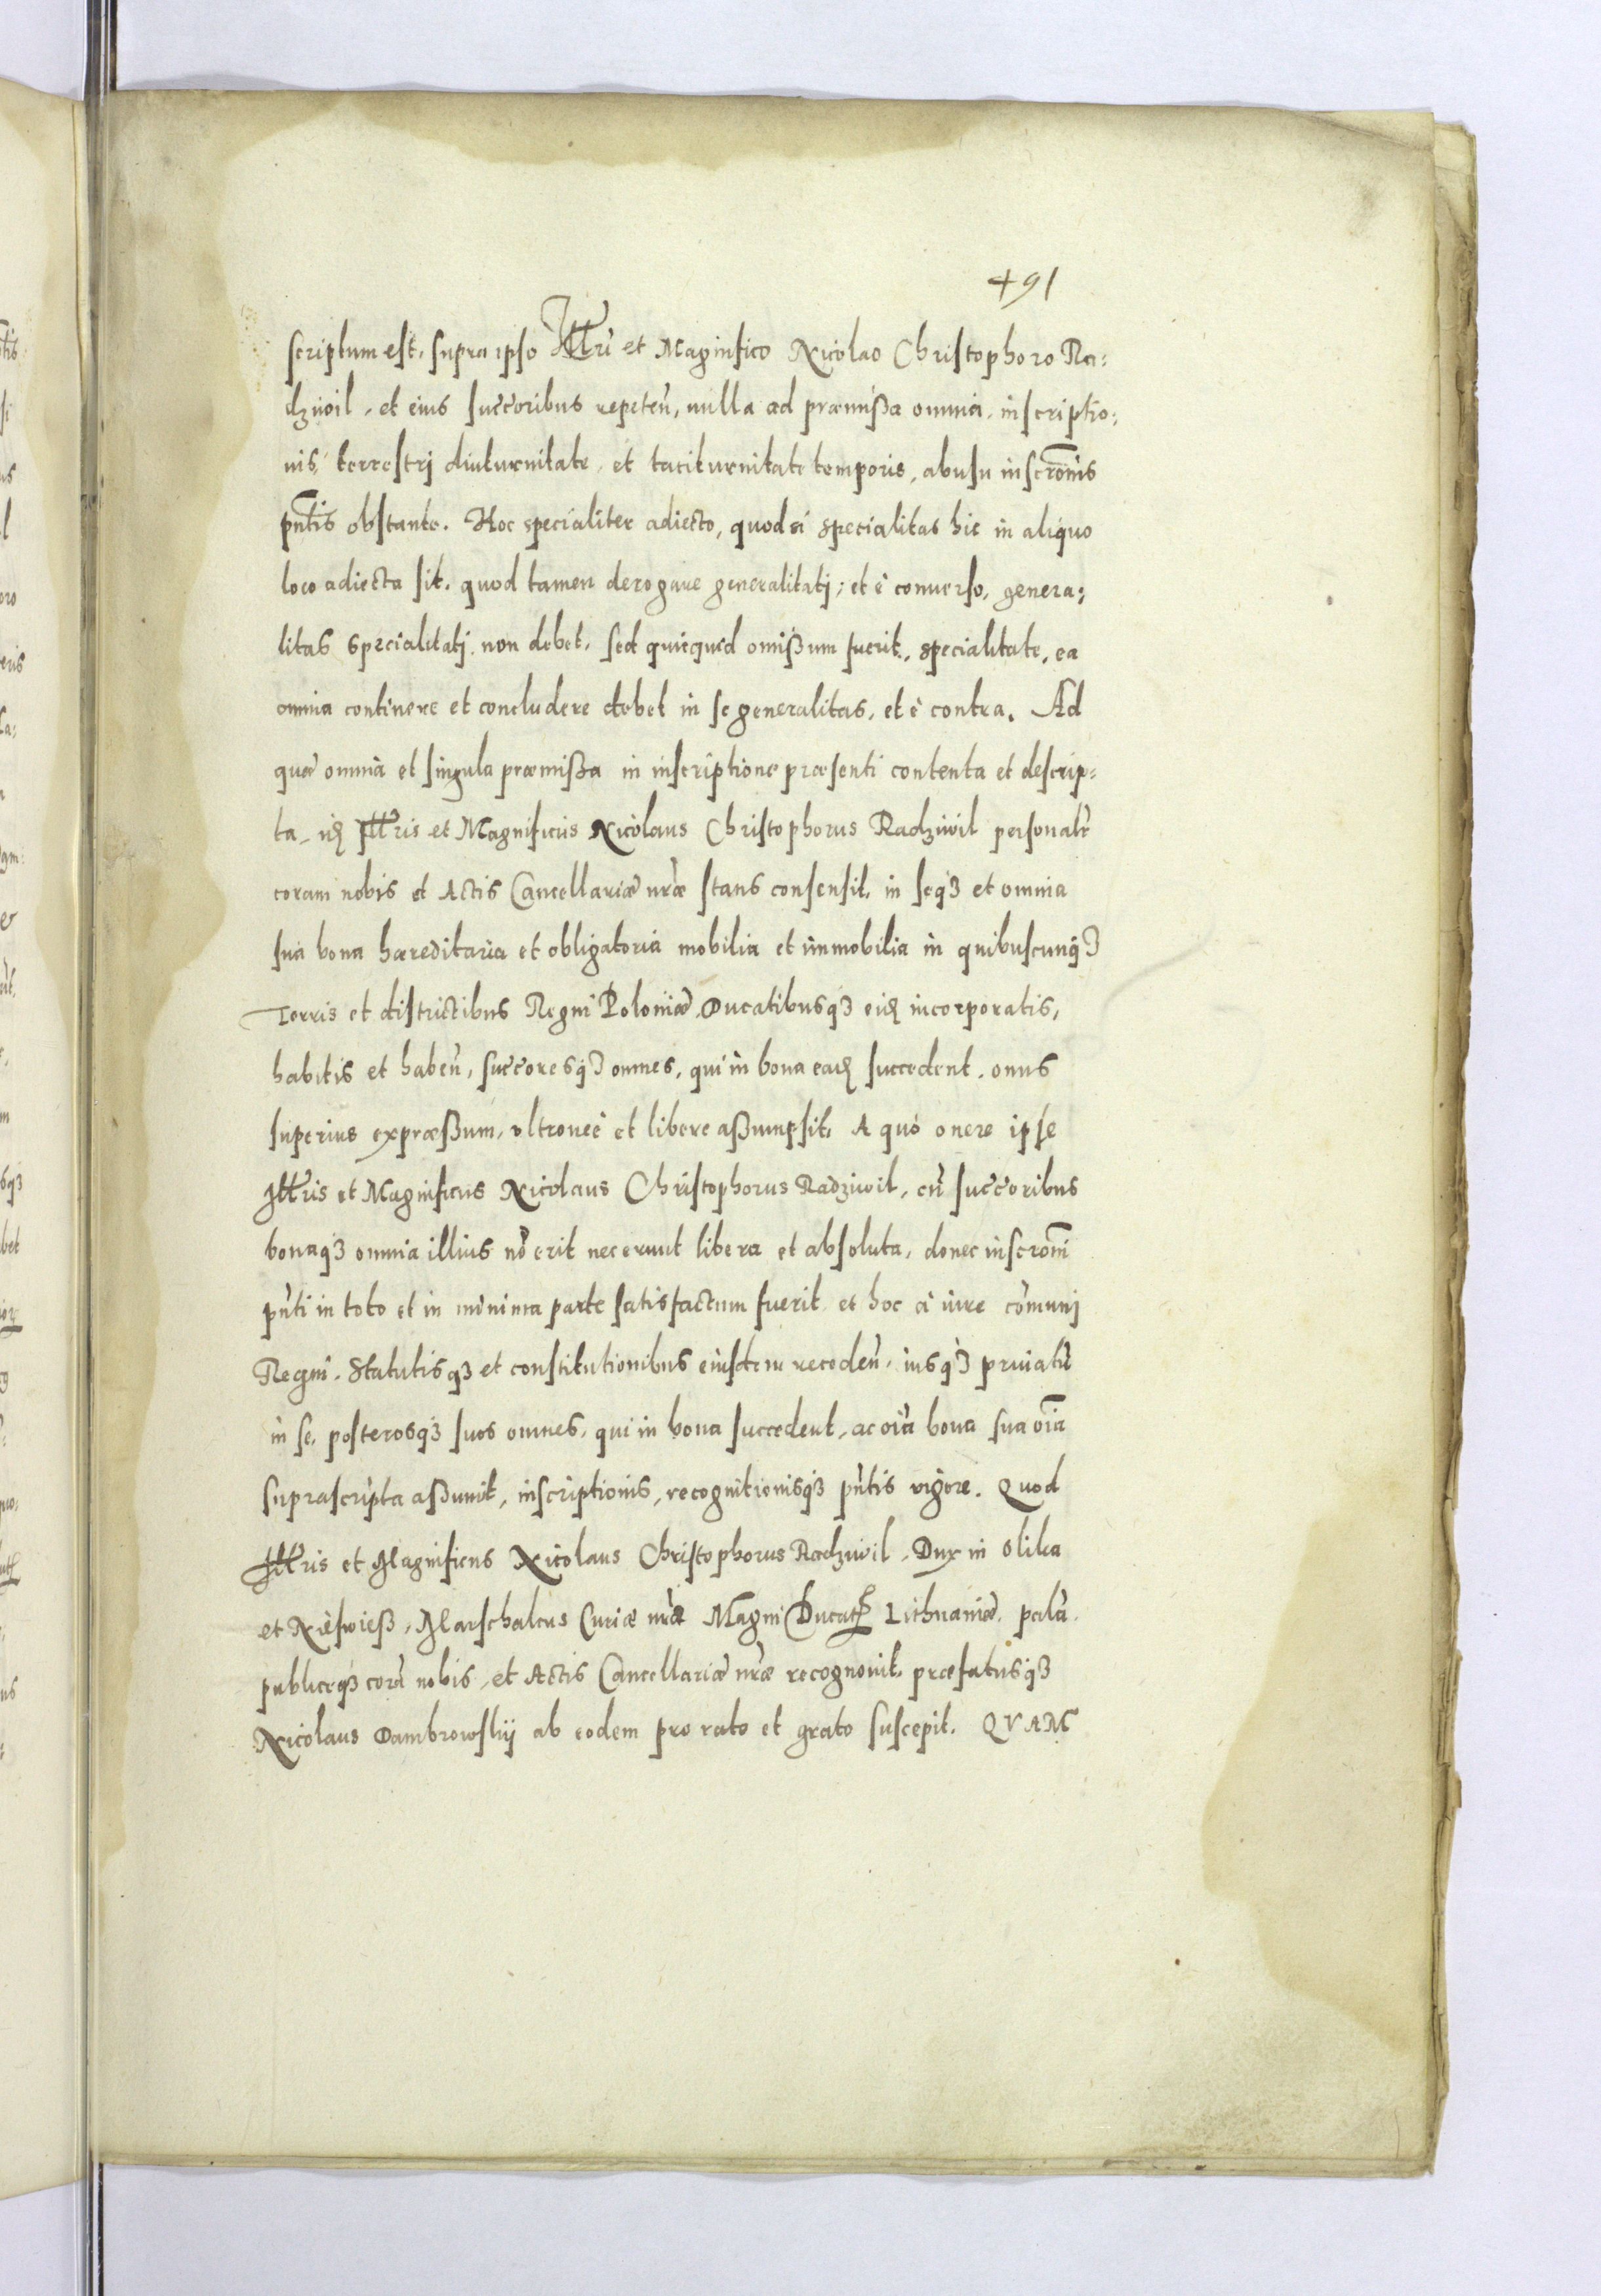 491
scriptum est, supra ipso Illri et Magnifico Nicolao Christophoro Ra:
dziwil, et eius succoribus repeten̄, nulla ad præmissa omnia, inscriptio:
nis, terrestrj diuturnitate, et taciturnitate temporis, abusu inscrōnis
pn̄tis obstante. Hoc specialiter adiecto, quod si specialitas hic in aliquo
loco adiecta sit. quod tamen derogare generalitatj; et è conuerso, genera:
litas specialitatj non debet, sed quicquid omissum fuerit, specialitate, ea
omnia continere et concludere debet in se generalitas, et è contra. Ad
quæ omnia et singula præmissa in inscriptione præsenti contenta et descrip:
ta, Illris et Magnificus Nicolaus Christophorus Radziwil personalr̄
coram nobis et Actis Cancellariæ nr̄æ stans consensit, in seqꝫ et omnia
sua bona hæreditaria et obligatoria mobilia et immobilia in quibuscunqꝫ
Terris et districtibus Regni Poloniæ, Ducatibusqꝫ eid incorporatis,
habitis et haben̄, succoresqꝫ omnes, qui in bona ead succedent, onus
superius expræssum, vltroneè et libere assumpsit, A quó onere ipse
Illris et Magnificus Nicolaus Christophorus Radziwil, cū succoribus
bonaqꝫ omnia illius nō erit nec erunt libera et absoluta, donec inscrōni
pn̄ti in toto et in minima parte satisfactum fuerit, et hoc á iure cōmunj
Regni, Statutisqꝫ et constitutionibus eiusdem receden̄, iusqꝫ priuatū
in se, posterosqꝫ suos omnes, qui in bona succedent, ac oīa bona sua oīa
suprascripta assumit, inscriptionis, recognitionisqꝫ pn̄tis vigore. Quod
Illris et Magnificus Nicolaus Christophorus Radziwil, Dux in Olika
et Nieswiess, Marschalcus Curiæ nr̄æ Magni Ducat Lithuaniæ, palā
publiceqꝫ corā nobis, et Actis Cancellariæ nr̄æ recognouit, præfatusqꝫ
Nicolaus Dambrowskij ab eodem pro rato et grato suscepit. QVAM